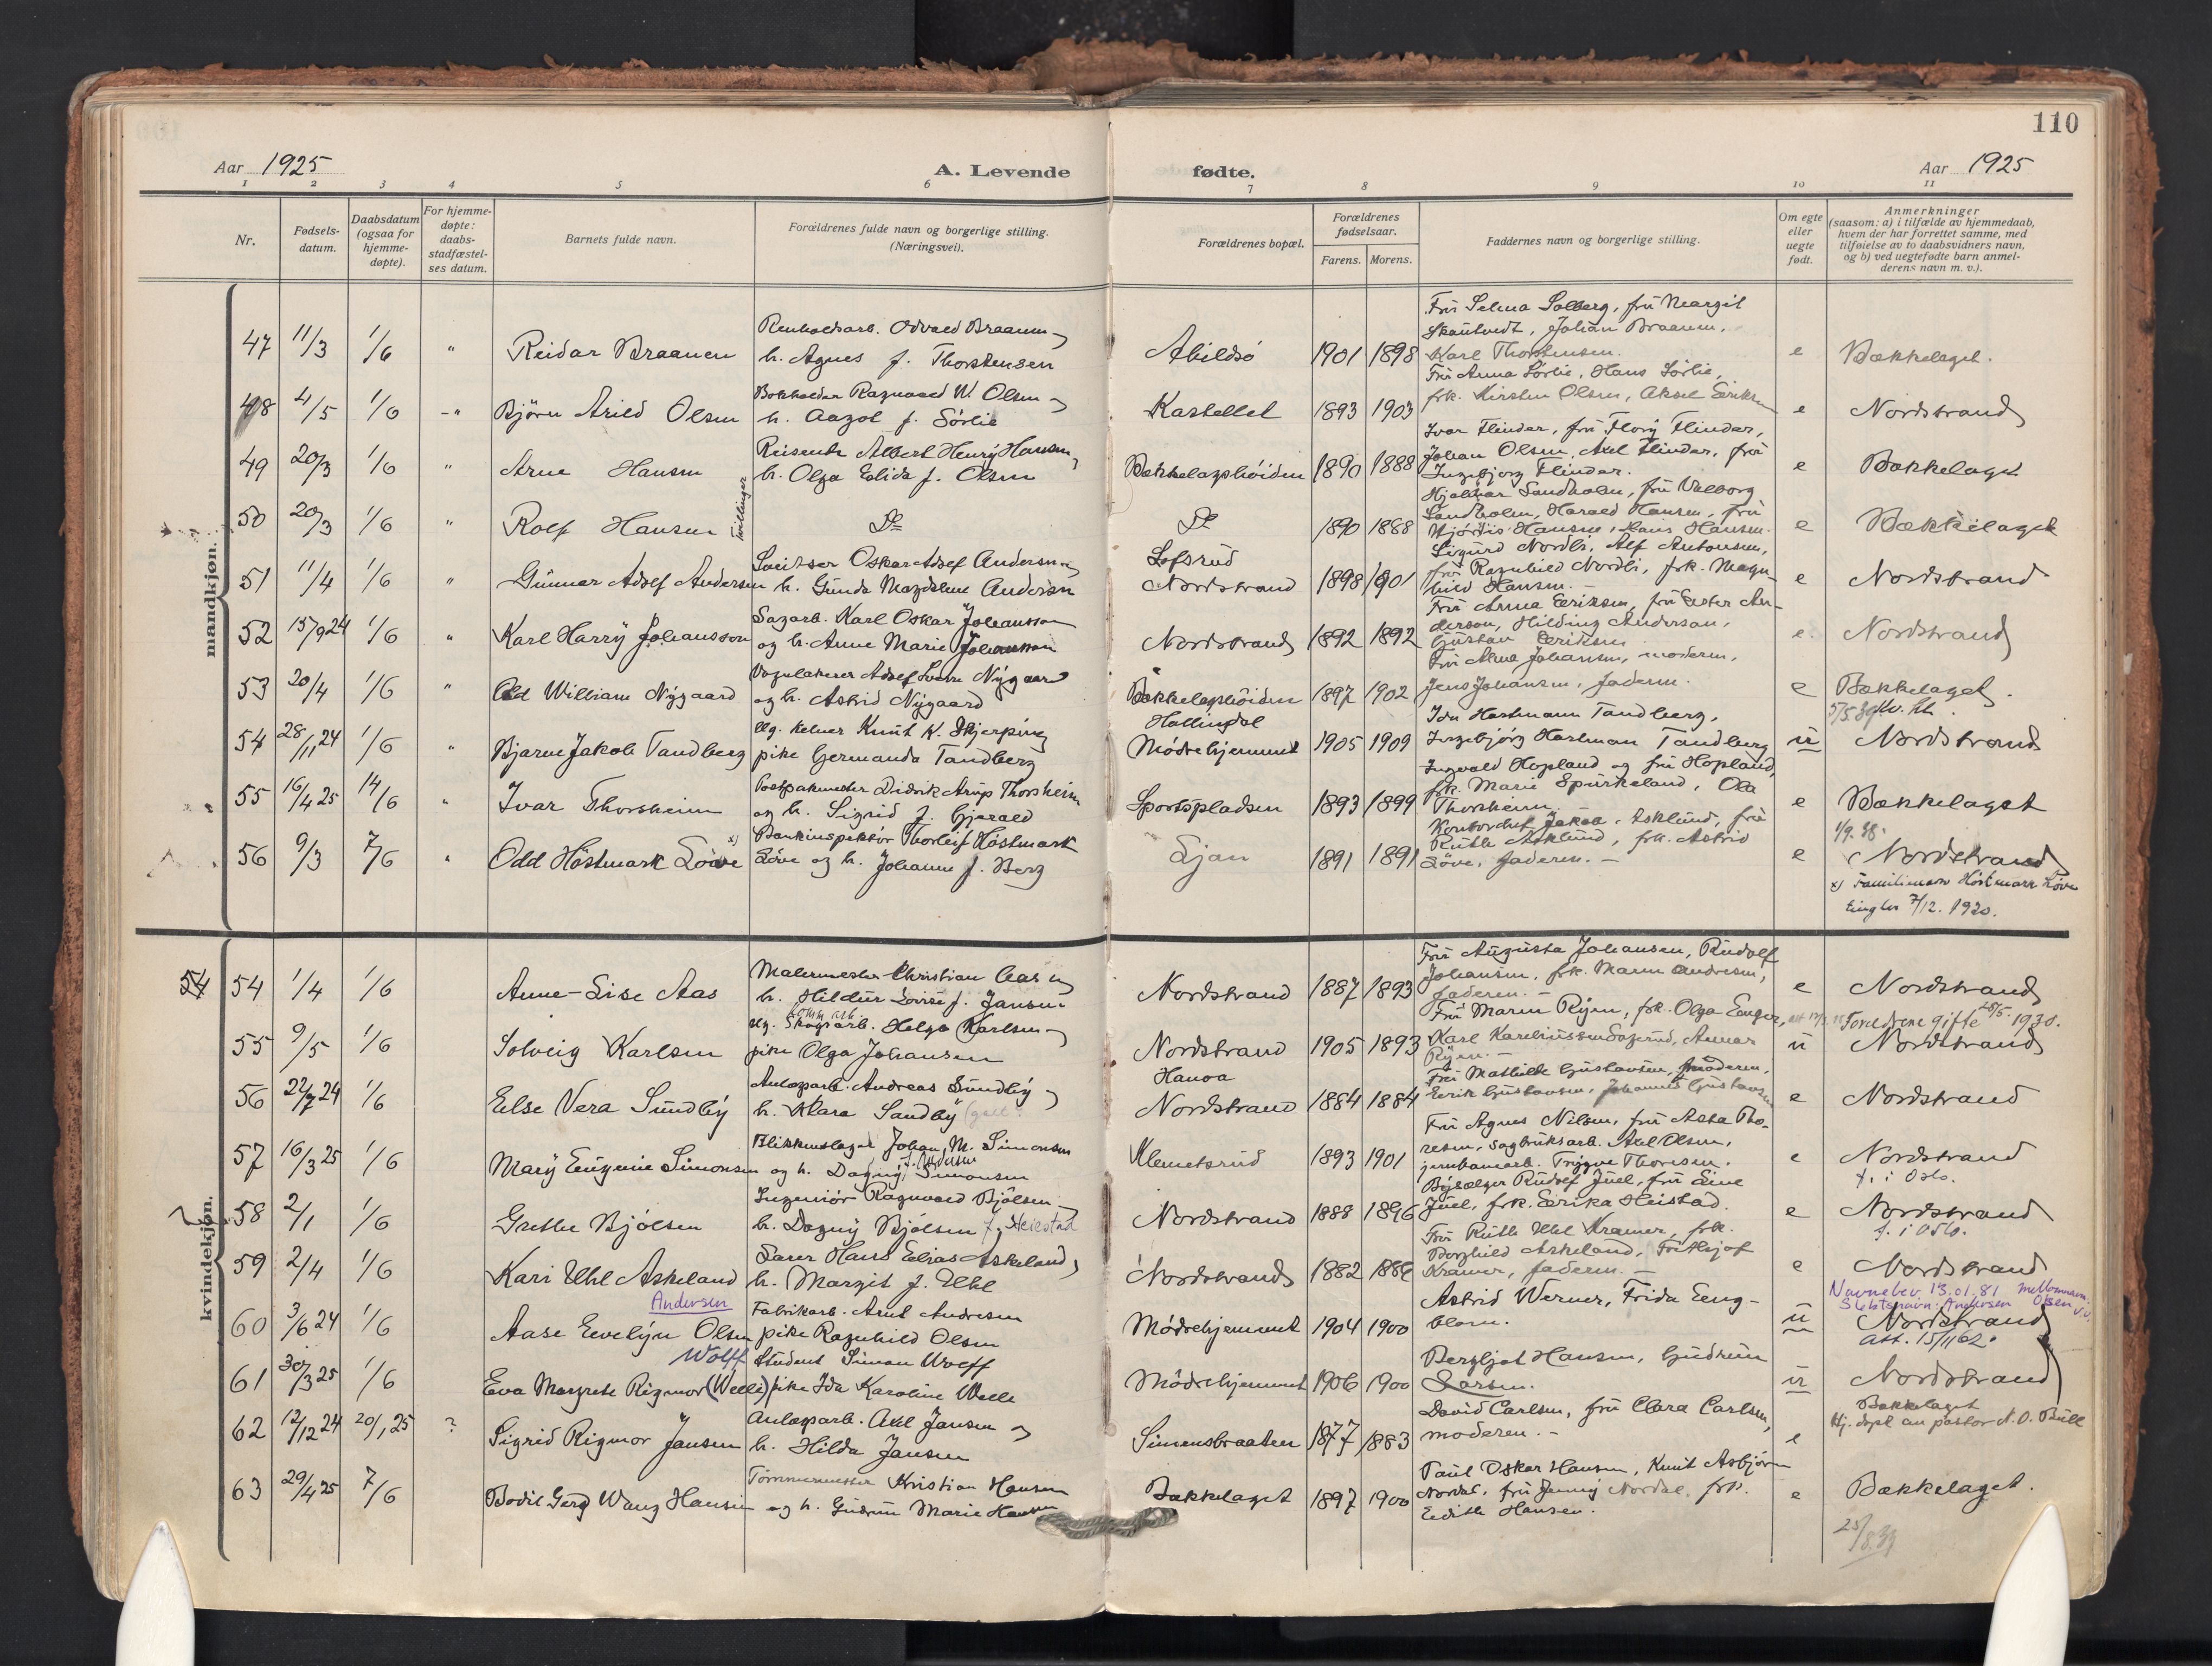 110
Aar 1925 A. Levende fødte. Aar 1925
1 2 3 4 5 6 7 8 9 10 11
Nr.
Fødsels-
datum.
Daabsdatum
(ogsaa for
hjemme-
døpte).
For hjemme-
døpte:
daabs-
stadfæstel-
ses datum.
Barnets fulde navn.
Forældrenes fulde navn og borgerlige stilling.
(Næringsvei).
Forældrenes bopæl.
Forældrenes
fødselsaar.
Farens. Morens.
Faddernes navn og borgerlige stilling.
Om egte
eller
uegte
født.
Anmerkninger
(saasom: a) i tilfælde av hjemmedaab,
hvem der har forrettet samme, med
tilføielse av to daabsvidners navn,
og b) ved uegtefødte barn anmel-
derens navn m. v.).
mandkjøn.
47 11/3 1/6 " Reidar Braanen
Renholdsarb. Odvald Braanen
h. Agnes f. Thorstensen
Abildsö 1901 1898
Fru Selma Solberg, frü Margit
Skaütvedt, Johan Braanen,
Karl Thorstensen.
e Bækkelaget.
48 4/5 1/6 " Björn Arild Olsen
Bokholder Ragnvald W. Olsen
h. Aagot f. Sörlie
Kastellet 1893 1903
Frü Anna Sörlie, Hans Sörlie,
frk. Kirsten Olsen, Aksel Eriksen
e Nordstrand
49 20/3 1/6 " Arne Hansen
Reisende Albert Henrÿ Hansen,
h. Olga Elida f. Olsen
Bækkelagshöiden 1890 1888
Ivar Flinder, frü Florÿ Flinder,
Johan Olsen, Axel Flinder, frü
Ingebjorg Flinder.
e Bækkelaget
50 20/3 1/6 " Rolf Hansen
tvillinger
Do Do 1890 1888
Hjalmar Sandholm, frü Valborg
Sandholm, Harald Hansen, frü
Hjördis Hansen, Hans Hansen.
e Bækkelaget
51 11/4 1/6 " Günnar Adolf Andersen
Sveitser Oskar Adolf Andersen
h. Günda Magdalene Andersen
Lofsrüd
Nordstrand 1898 1901
Sigürd Nordli, Alf Antonsen,
frü Ragnhild Nordli, frk. Magn-
hild Hansen.
e Nordstrand
52 15/9 24 1/6 " Karl Harrÿ Johansson
Sagarb. Karl Oskar Johansson
og h. Anne Marie Johansson
Nordstrand 1892 1892
Frü Anna Eriksen, frü Ester An-
derson, Hilding Anderson,
Güstav Eriksen
e. Nordstrand
53 20/4 1/6 " Odd William Nÿgaard
Vognlakerer Adolf Nÿgaard
og h. Astrid Nÿgaard
Bækkelagshöiden 1897 1902
Frü Alma Johansen, moderen,
Jens Johansen, faderen.
e Bækkelaget.
54 28/11 24 1/6 " Bjarne Jakob Tandberg
Ug. kelner Knüt K. Skjerping
pike Germanda Tandberg
Hallingdal
Mödrehjemmet 1905 1909
Ida Hartmann Tandberg,
Ingebjörg Hartman Tandberg
ü Nordstrand
55 16/4 25 14/6 " Ivar Thorsheim
Postpakmester Didrik Arup Thorsheim
og h. Sigrid f. Gjerald
Sportspladsen 1893 1899
Ingvald Hopland og frü Hopland,
frk. Marie Spürkeland, Ola
Thorsheim.
e Bækkelaget
56 9/3 7/6 " Odd Höstmark Löve x)
Bankinspektör Thorleif Höstmark
Löve og h. Johanne f. Berg
Ljan 1891 1891
Kontorchef Jakob Asklünd, frü
Rüth Asklünd, frk. Astrid
Löve, faderen. —
e 1/9.48.
Nordstrand
x) Familienavn Höstmark Löve
7/12. 1920.
kvindekjøn.
54 54 1/4 1/6 Anne-Lise Aas
Malermester Christian Aas
h. Hildür Lovise f. Jansen
Nordstrand 1887 1893
Frü Augüsta Johansen, Rüdolf
Johansen, frk. Maren Andresen,
faderen. —
e Nordstrand
55 9/5 1/6 Solveig Karlsen
Ug. Skogsarb. Helge Karlsen
pike Olga Johansen
Nordstrand 1905 1893
Frü Maren Rÿen, frk. Olga Enger,
Karl Kareliüssen Sagerüd, Annar
Rÿen. —
ü Foreldrene gifte 28/5. 1930.
Nordstrand
56 22/7 24 1/6 Else Vera Sündbÿ
Anlægsarb. Andreas Sündbÿ
h. Klara Sandbÿ
Hanoa
Nordstrand 1884 1884
Frü Mathilde Güstavsen, moderen,
Erik Güstavsen, Johannes Güstavsen
e Nordstrand
57 16/3 25 1/6 Marÿ Eügenie Simonsen
Blikkenslager Johan M. Simonsen
og h. Dagnÿ Simonsen
Klemetsrüd 1893 1901
Frü Agnes Nilsen, frü Asta Tho-
resen, sagbrüksarb. Axel Olsen,
jernbanearb. Trÿgve Thoresen.
e Nordstrand
f. i Oslo.
58 2/1 1/6 Grethe Bjölsen
Ingeniör Ragnvald Bjölsen
h. Dagnÿ Bjölsen f. Heiestad
Nordstrand 1888 1896
Bÿselger Rüdolf Jüel, frü Eine
Jüel, frk. Erika Heistad.
e Nordstrand
f. i Oslo.
59 2/4 1/6 Kari Uhl Askeland
Lærer Hans Elias Askeland,
h. Margit f. Uhl
Nordstrand 1882 1886
Frü Rüth Uhl Kramer, frk.
Borghild Askeland, Frithjof
Kramer, faderen. —
e Nordstrand
60 3/6 24 1/6 Aase Evelÿn Olsen
Andersen
Fabrikarb. Arnt Andresen
pike Ragnhild Olsen
Mödrehjemmet 1904 1900
Astrid Werner, Frida Eng-
blom.
ü Navnebev. 13.01.81 mellomnavn
Slektsnavn: Andersen Olsen
Nordstrand
att. 15/11 62.
61 30/3 25 1/6 Eva Margrete Rigmor (Welle)
Wolff
Student Simon Wolff
pike Ida Karoline Welle
Mödrehjemmet 1906 1900
Bergljot Hansen, Güdrün
Larsen.
ü Nordstrand
62 12/12 24 20/1 25 ? Sigrid Rigmor Jansen
Anlægsarb. Axel Jansen
h. Hilda Jansen
Simensbraaten 1877 1883
David Carlsen, frü Clara Carlsen,
moderen. —
e Bækkelaget
Hj. døpt av pastor A. O. Büll
63 29/4 25 7/6 Bodil Gerd Wang Hansen
Tömmermester Kristian Hansen
og h. Güdrün Marie Hansen
Bækkelaget 1897 1900
Paül Oskar Hansen, Knüt Asbjörn
Nordal, frü Jennÿ Nordal, frk.
Edith Hansen.
e Bækkelaget.
25/8.39